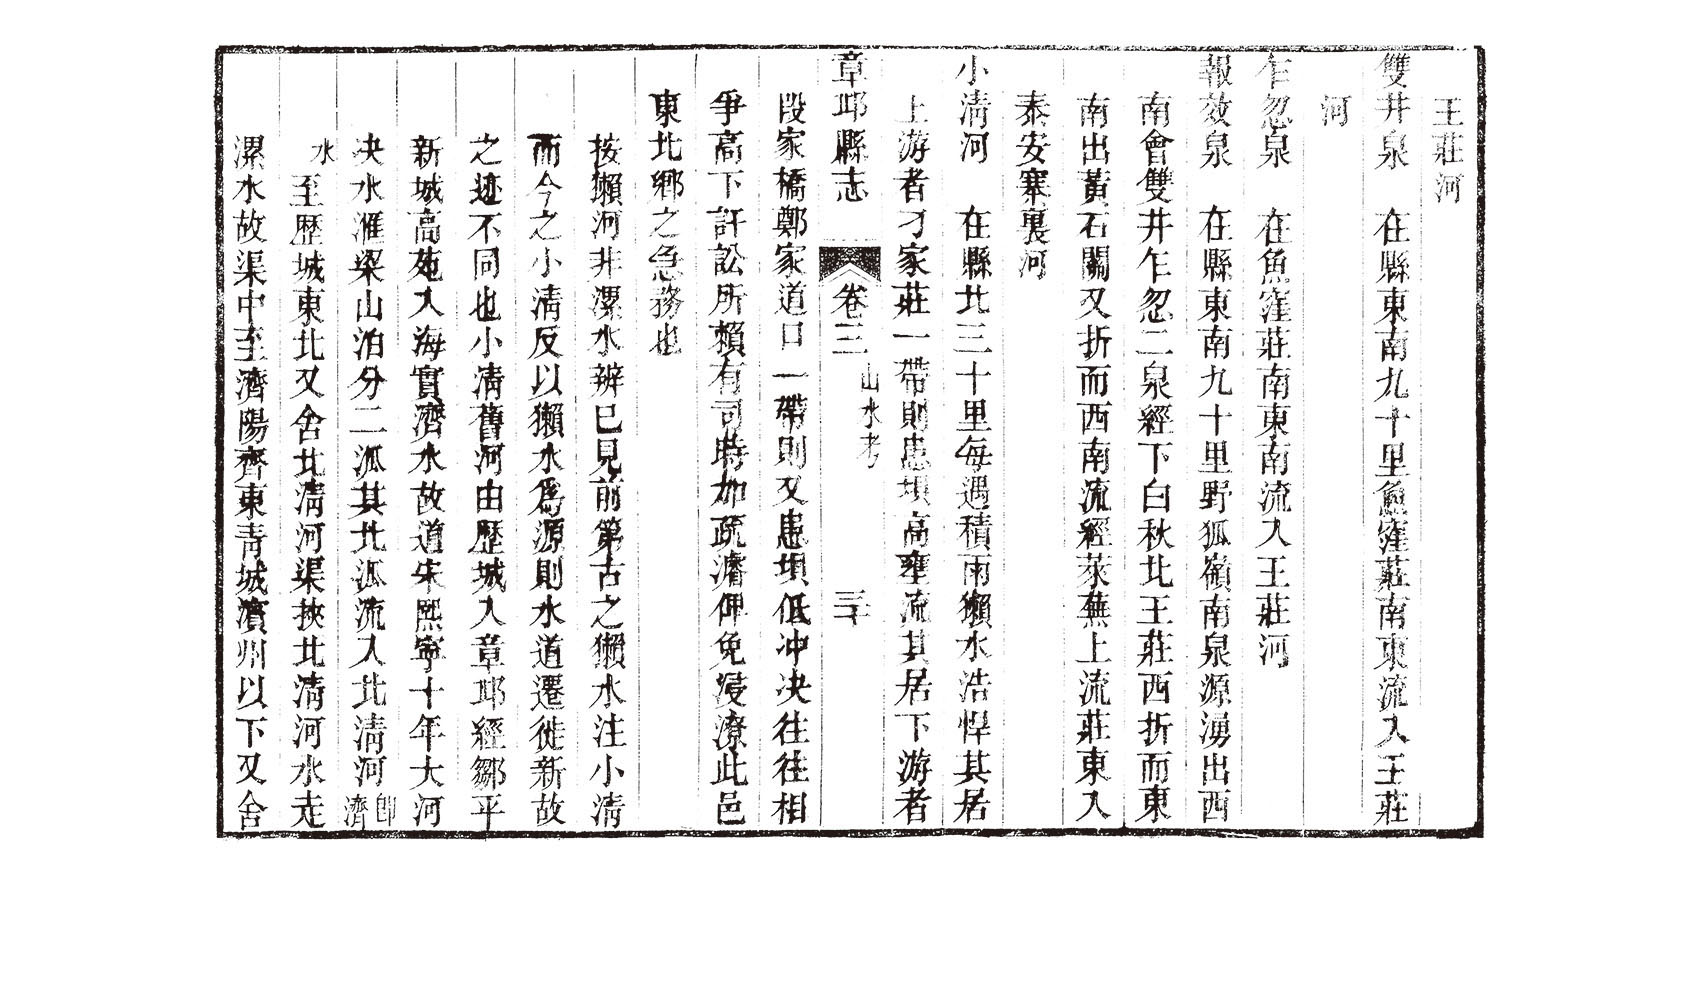 王莊河
雙井泉　在縣東南九十里魚窪莊南東流入王莊
河
乍忽泉　在魚窪莊南東南流入王莊河
報效泉　在縣東南九十里野狐嶺南泉源湧出西
南會雙井乍忽二泉經下白秋北王莊西折而東
南出黃石關又折而西南流經萊蕪上流莊東入
泰安寨裏河
小淸河　在縣北三十里每遇積雨獺水浩悍其居
上游者刁家莊一帶則患壩高壅流其居下游者
章邱縣志　卷三　山水考　三十
段家橋鄭家道口一帶則又患壩低冲决往往相
爭高下訐訟所賴有司時加疏濬俾免浸潦此邑
東北鄉之急務也
按獺河非漯水辨已見前第古之獺水注小淸
而今之小淸反以獺水爲源則水道遷徙新故
之迹不同也小淸舊河由歷城入章邱經鄒平
新城高苑入海實濟水故道宋熙寧十年大河
决水滙梁山泊分二派其北派流入北淸河卽濟
水至歷城東北又舍北淸河渠挾北淸河水走
漯水故渠中至濟陽齊東靑城濱州以下又舍